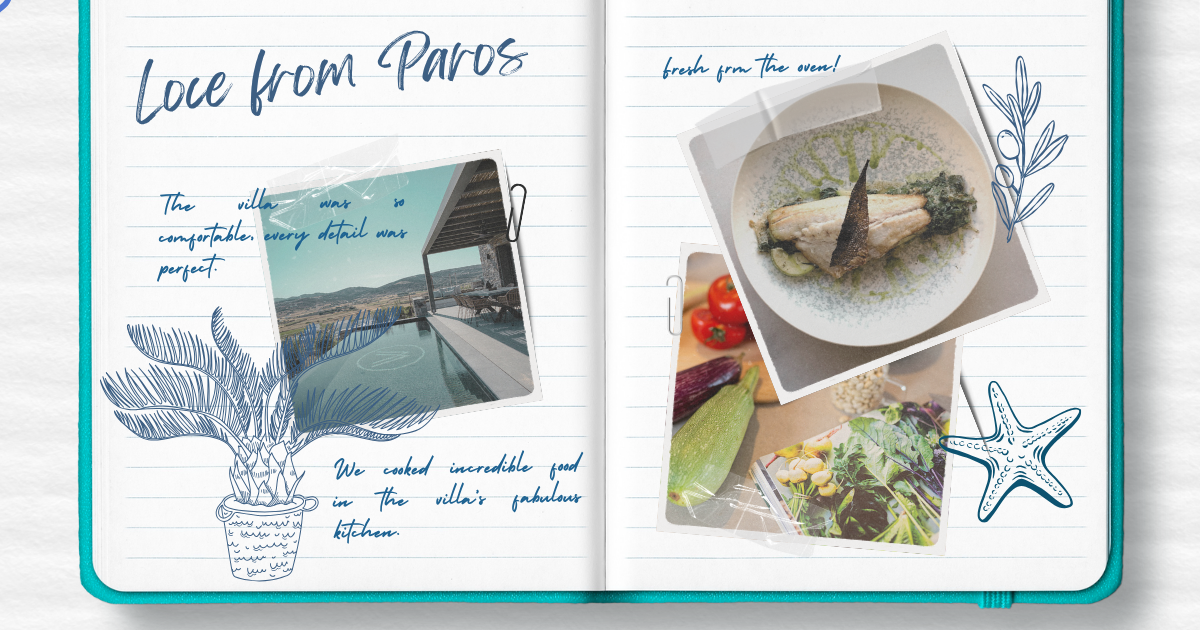 Loce from Paros
The villa was so
comfortable, every detail was
perfect.
We cooked incredible food
in the villa's fabulous
kitchen.
fresh frm the oven!